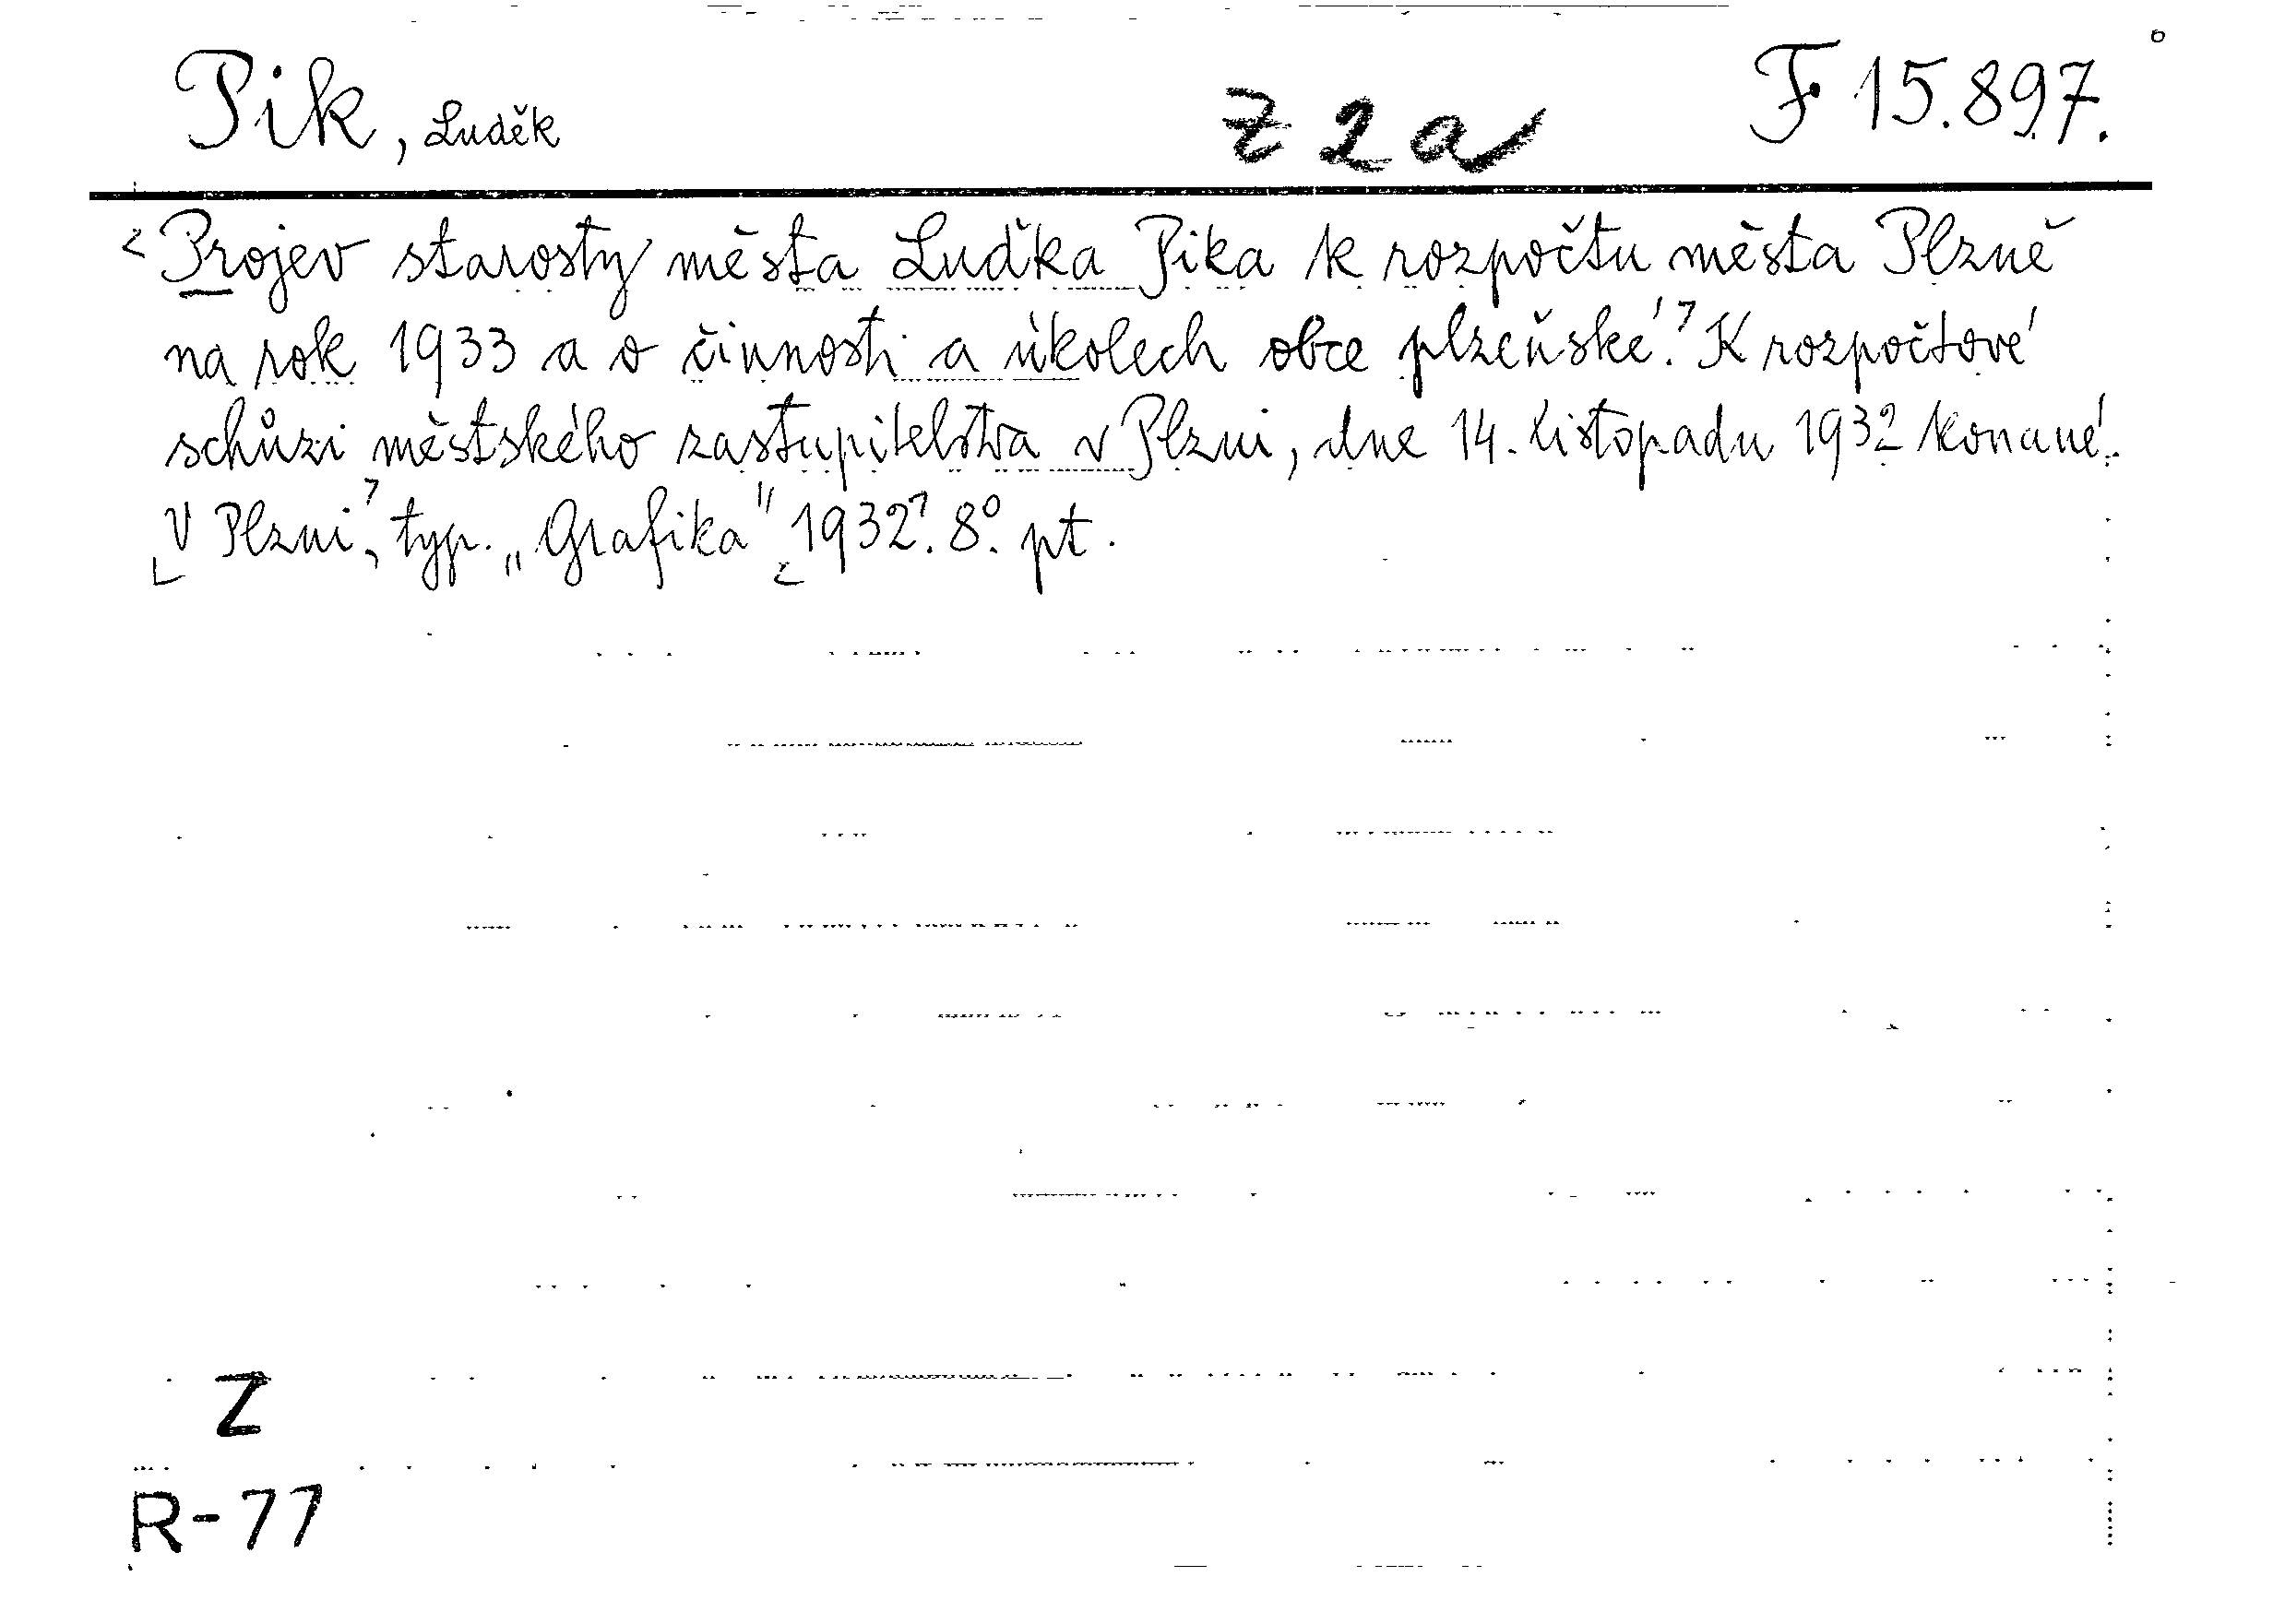 Pik, Luděk
Z 2a
F 15.897.
Projev starosty města Luďka Pika k rozpočtu města Plzně
na rok 1933 a o činnosti a úkolech obce plzeňské. K rozpočtové
schůzi městského zastupitelstva v Plzni, dne 14. listopadu 1932 konané.
V Plzni, typ. „Grafika" 1932. 8°. pt.
Z
R-77